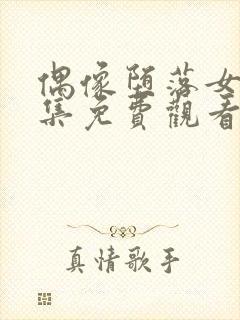 偶像堕落女
集免費觀看
真情歌手